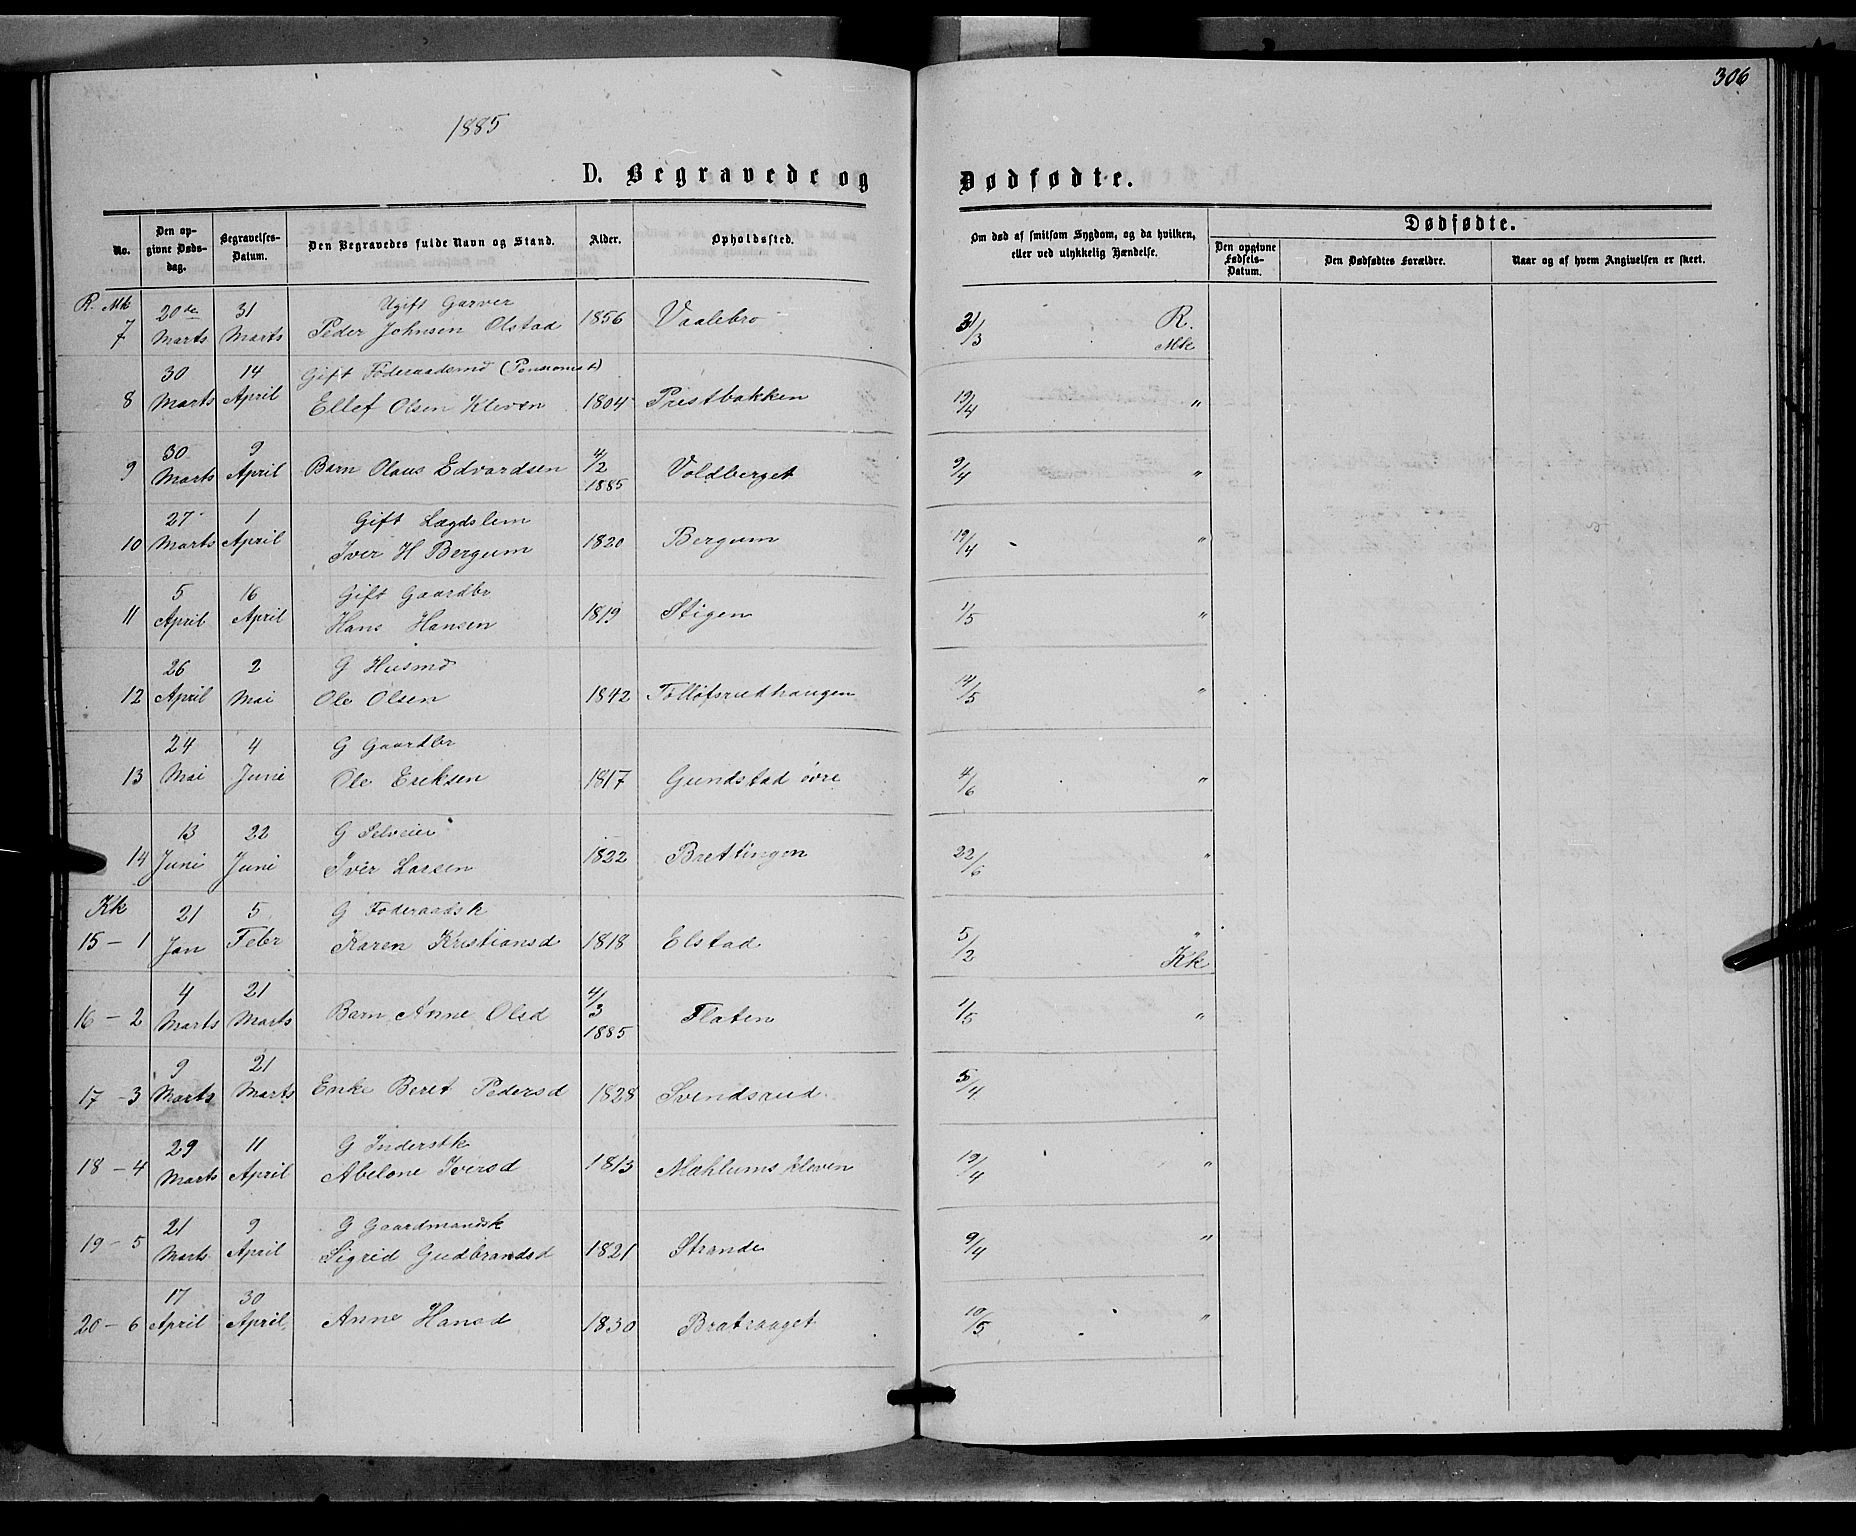 306
1885
D. Begravede og Dødfødte.
No. | Den opgivne Dødsdag. | Begravelses-Datum. | Den Begravedes fulde Navn og Stand. | Alder. | Opholdssted. | Om død af smitsom Sygdom, og da hvilken, eller ved ulykkelig Hændelse. | Dødfødte. | Den opgivne Fødsels-Datum. | Den Dødfødtes Forældre. | Naar og af hvem Angivelsen er skeet.
R. Mk 7 | 20de Marts | 31 Marts | Ugift Garver Peder Johnsen Olstad | 1856 | Vaalebro | 31/3 R. Mk
8 | 30 Marts | 14 April | Gift Føderaadsmd (Pensionist) Ellef Olsen Kleven | 1804 | Prestbakken | 19/4 "
9 | 30 Marts | 9 April | Barn Olaus Edvardsen | 4/2 1885 | Voldberget | 9/4 "
10 | 27 Marts | 1 April | Gift Lægdslem Iver H Bergum | 1820 | Bergum | 19/4 "
11 | 5 April | 16 April | Gift Gaardbr Hans Hansen | 1819 | Stigen | 1/5 "
12 | 26 April | 2 Mai | G Husmd Ole Olsen | 1842 | Tolløfsrudhaugen | 14/5 "
13 | 24 Mai | 4 Juni | G Gaardbr Ole Eriksen | 1817 | Gundstad øvre | 4/6 "
14 | 13 Juni | 22 Juni | G Selveier Iver Larsen | 1822 | Brettingen | 22/6 "
Kk 15 - 1 | 21 Jan | 5 Febr | G Føderaadsk Karen Kristiansd | 1818 | Elstad | 5/2 " Kk
16 - 2 | 4 Marts | 21 Marts | Barn Anne Olsd | 4/3 1885 | Flaten | 1/5 "
17 - 3 | 9 Marts | 21 Marts | Enke Beret Pedersd | 1828 | Svendsrud | 5/4
18 - 4 | 29 Marts | 11 April | G Inderstk Abelone Iversd | 1813 | Mæhlumskleven | 19/4 "
19 - 5 | 21 Marts | 9 April | G Gaardmandsk Sigrid Gudbrandsd | 1821 | Strande | 9/4 "
20 - 6 | 17 April | 30 April | Anne Hansd | 1830 | Bratraaget | 10/5 "